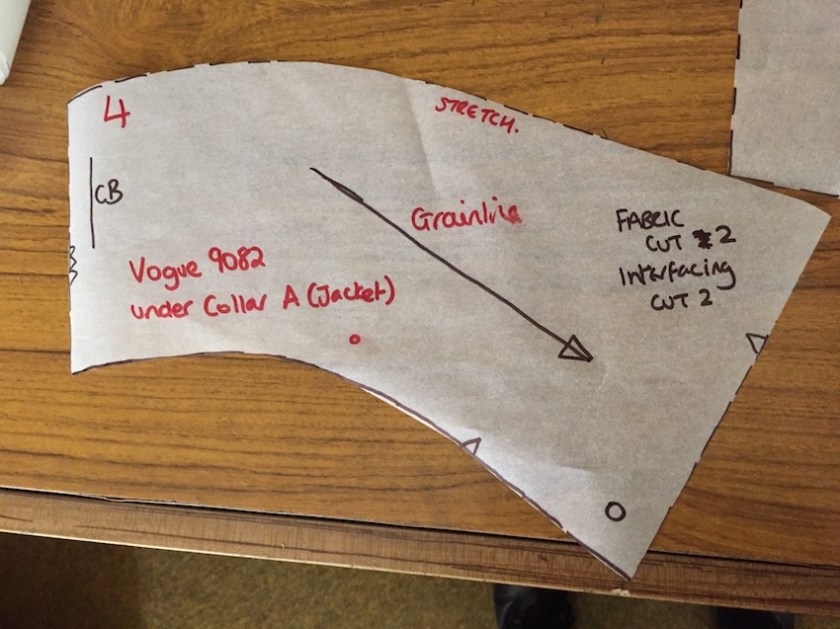 4
STRETCH.
CB
Grainline
FABRIC
CUT 2
Interfacing
CUT 2
Vogue 9082
under Collar A (Jacket)